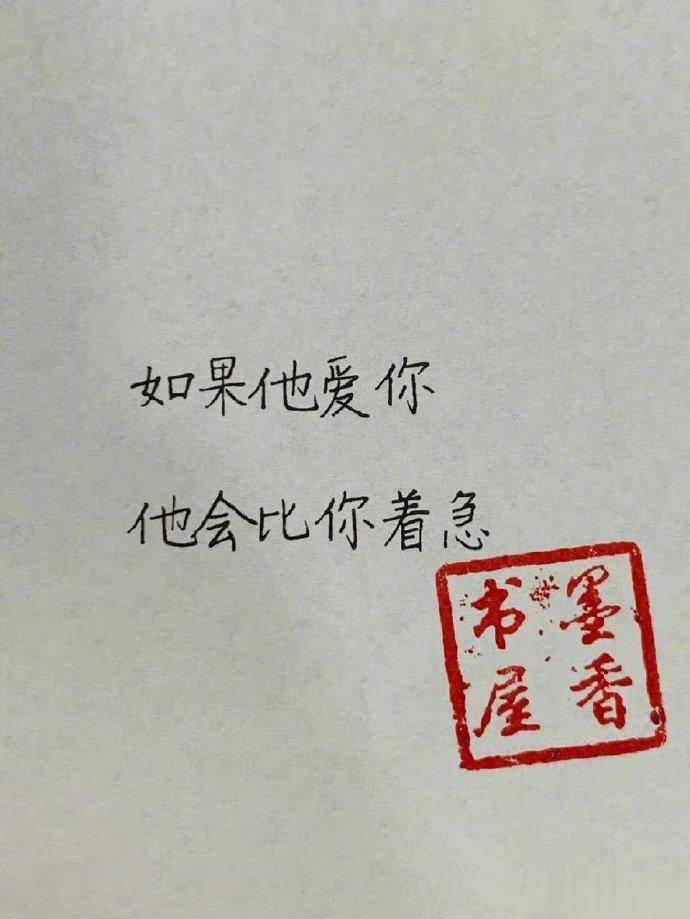 如果他爱你
他会比你着急
墨香
书屋